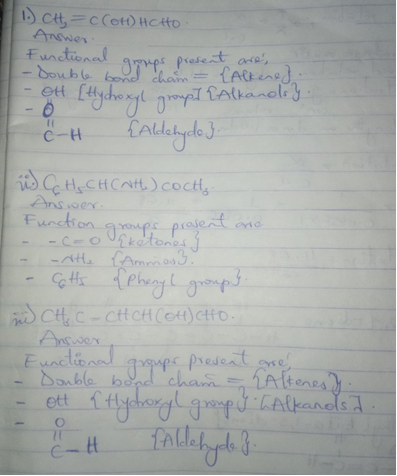 i.) CH₃=C(OH)HCHO.
Answer.
Functional groups present are;
- Double bond chain = {Alkene}.
- OH [Hydroxyl group] {Alkanols}.
- O
||
C-H {Aldehyde}.
ii) C₆H₅CH(NH₂)COCH₃
Answer.
Function groups present are
- -C=O {Ketones}
- -NH₂ {Ammes}.
- C₆H₅ {Phenyl group}.
iii) CH₃C-CHCH(OH)CHO.
Answer
Functional groups present are;
- Double bond chain = {Alkenes}.
- OH {Hydroxyl group}. [Alkanols].
- O
||
C-H {Aldehyde}.